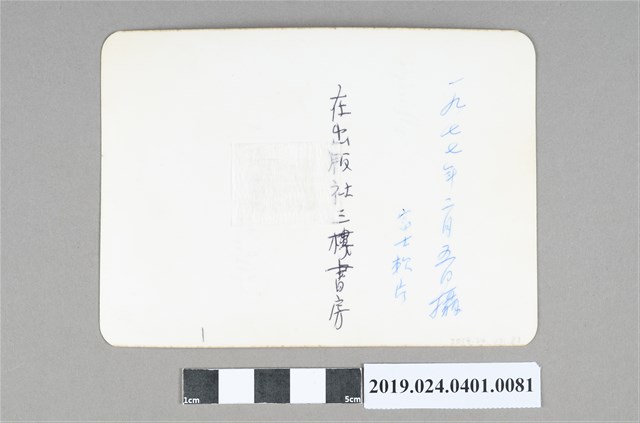 一九七七年二月五日攝
富士軟片
在出版社三樓書房
1cm
5cm
2019.024.0401.0081